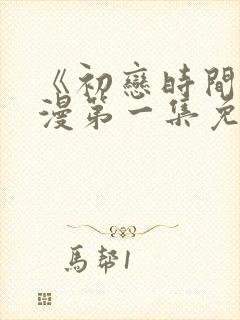 《初戀時間
漫第一集免
馬幇1